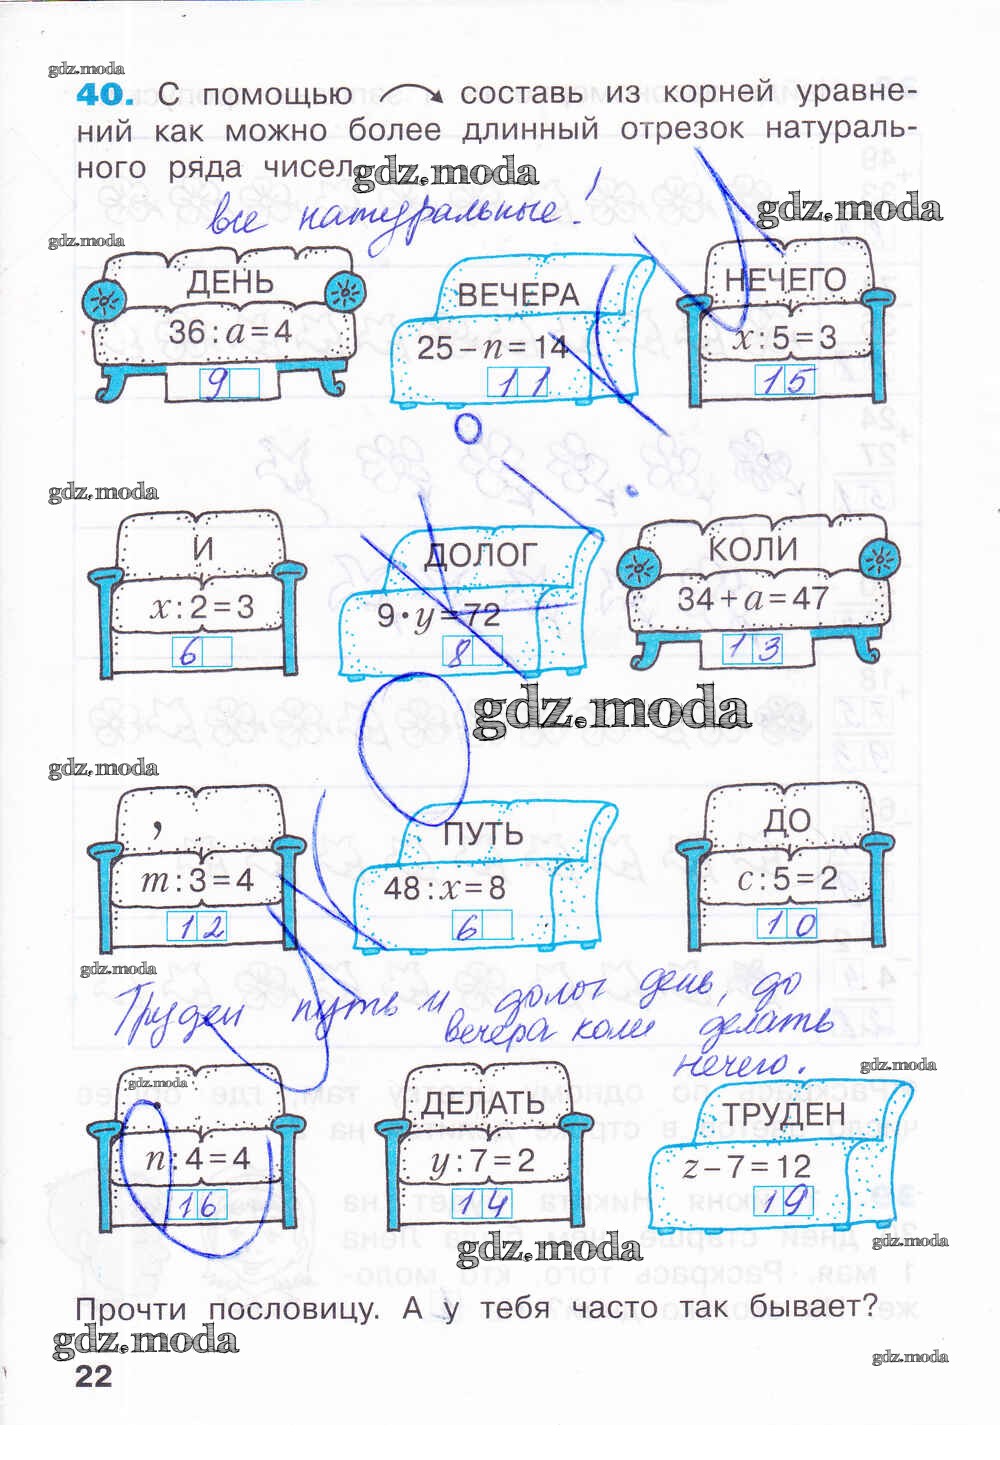 gdz.moda
40. С помощью составь из корней уравне-
ний как можно более длинный отрезок натураль-
ного ряда чисел.
gdz.moda
все натуральные!
gdz.moda
gdz.moda
ДЕНЬ
36 : a = 4
9
ВЕЧЕРА
25 – n = 14
11
НЕЧЕГО
x : 5 = 3
15
gdz.moda
И
x : 2 = 3
6
ДОЛОГ
9 · y = 72
8
КОЛИ
34 + a = 47
13
gdz.moda
gdz.moda
,
m : 3 = 4
12
ПУТЬ
48 : x = 8
6
ДО
c : 5 = 2
10
gdz.moda
Труден путь и долог день, до
вечера коли делать
нечего.
gdz.moda
gdz.moda
.
n : 4 = 4
16
ДЕЛАТЬ
y : 7 = 2
14
ТРУДЕН
z – 7 = 12
19
gdz.moda
gdz.moda
Прочти пословицу. А у тебя часто так бывает?
gdz.moda
gdz.moda
22